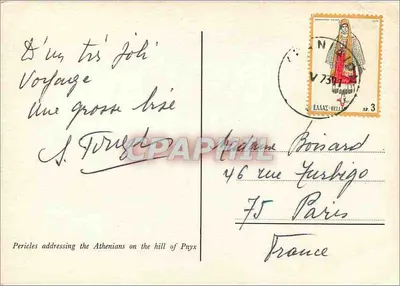 D'un très joli
Voyage
une grosse bise
S.
Pericles addressing the Athenians on the hill of Pnyx
ΕΛΛΑΣ-HELLAS
ΔΡ 3
V 73
CPAPHIL
Madame Boisard
46 rue Turbigo
75 Paris
France